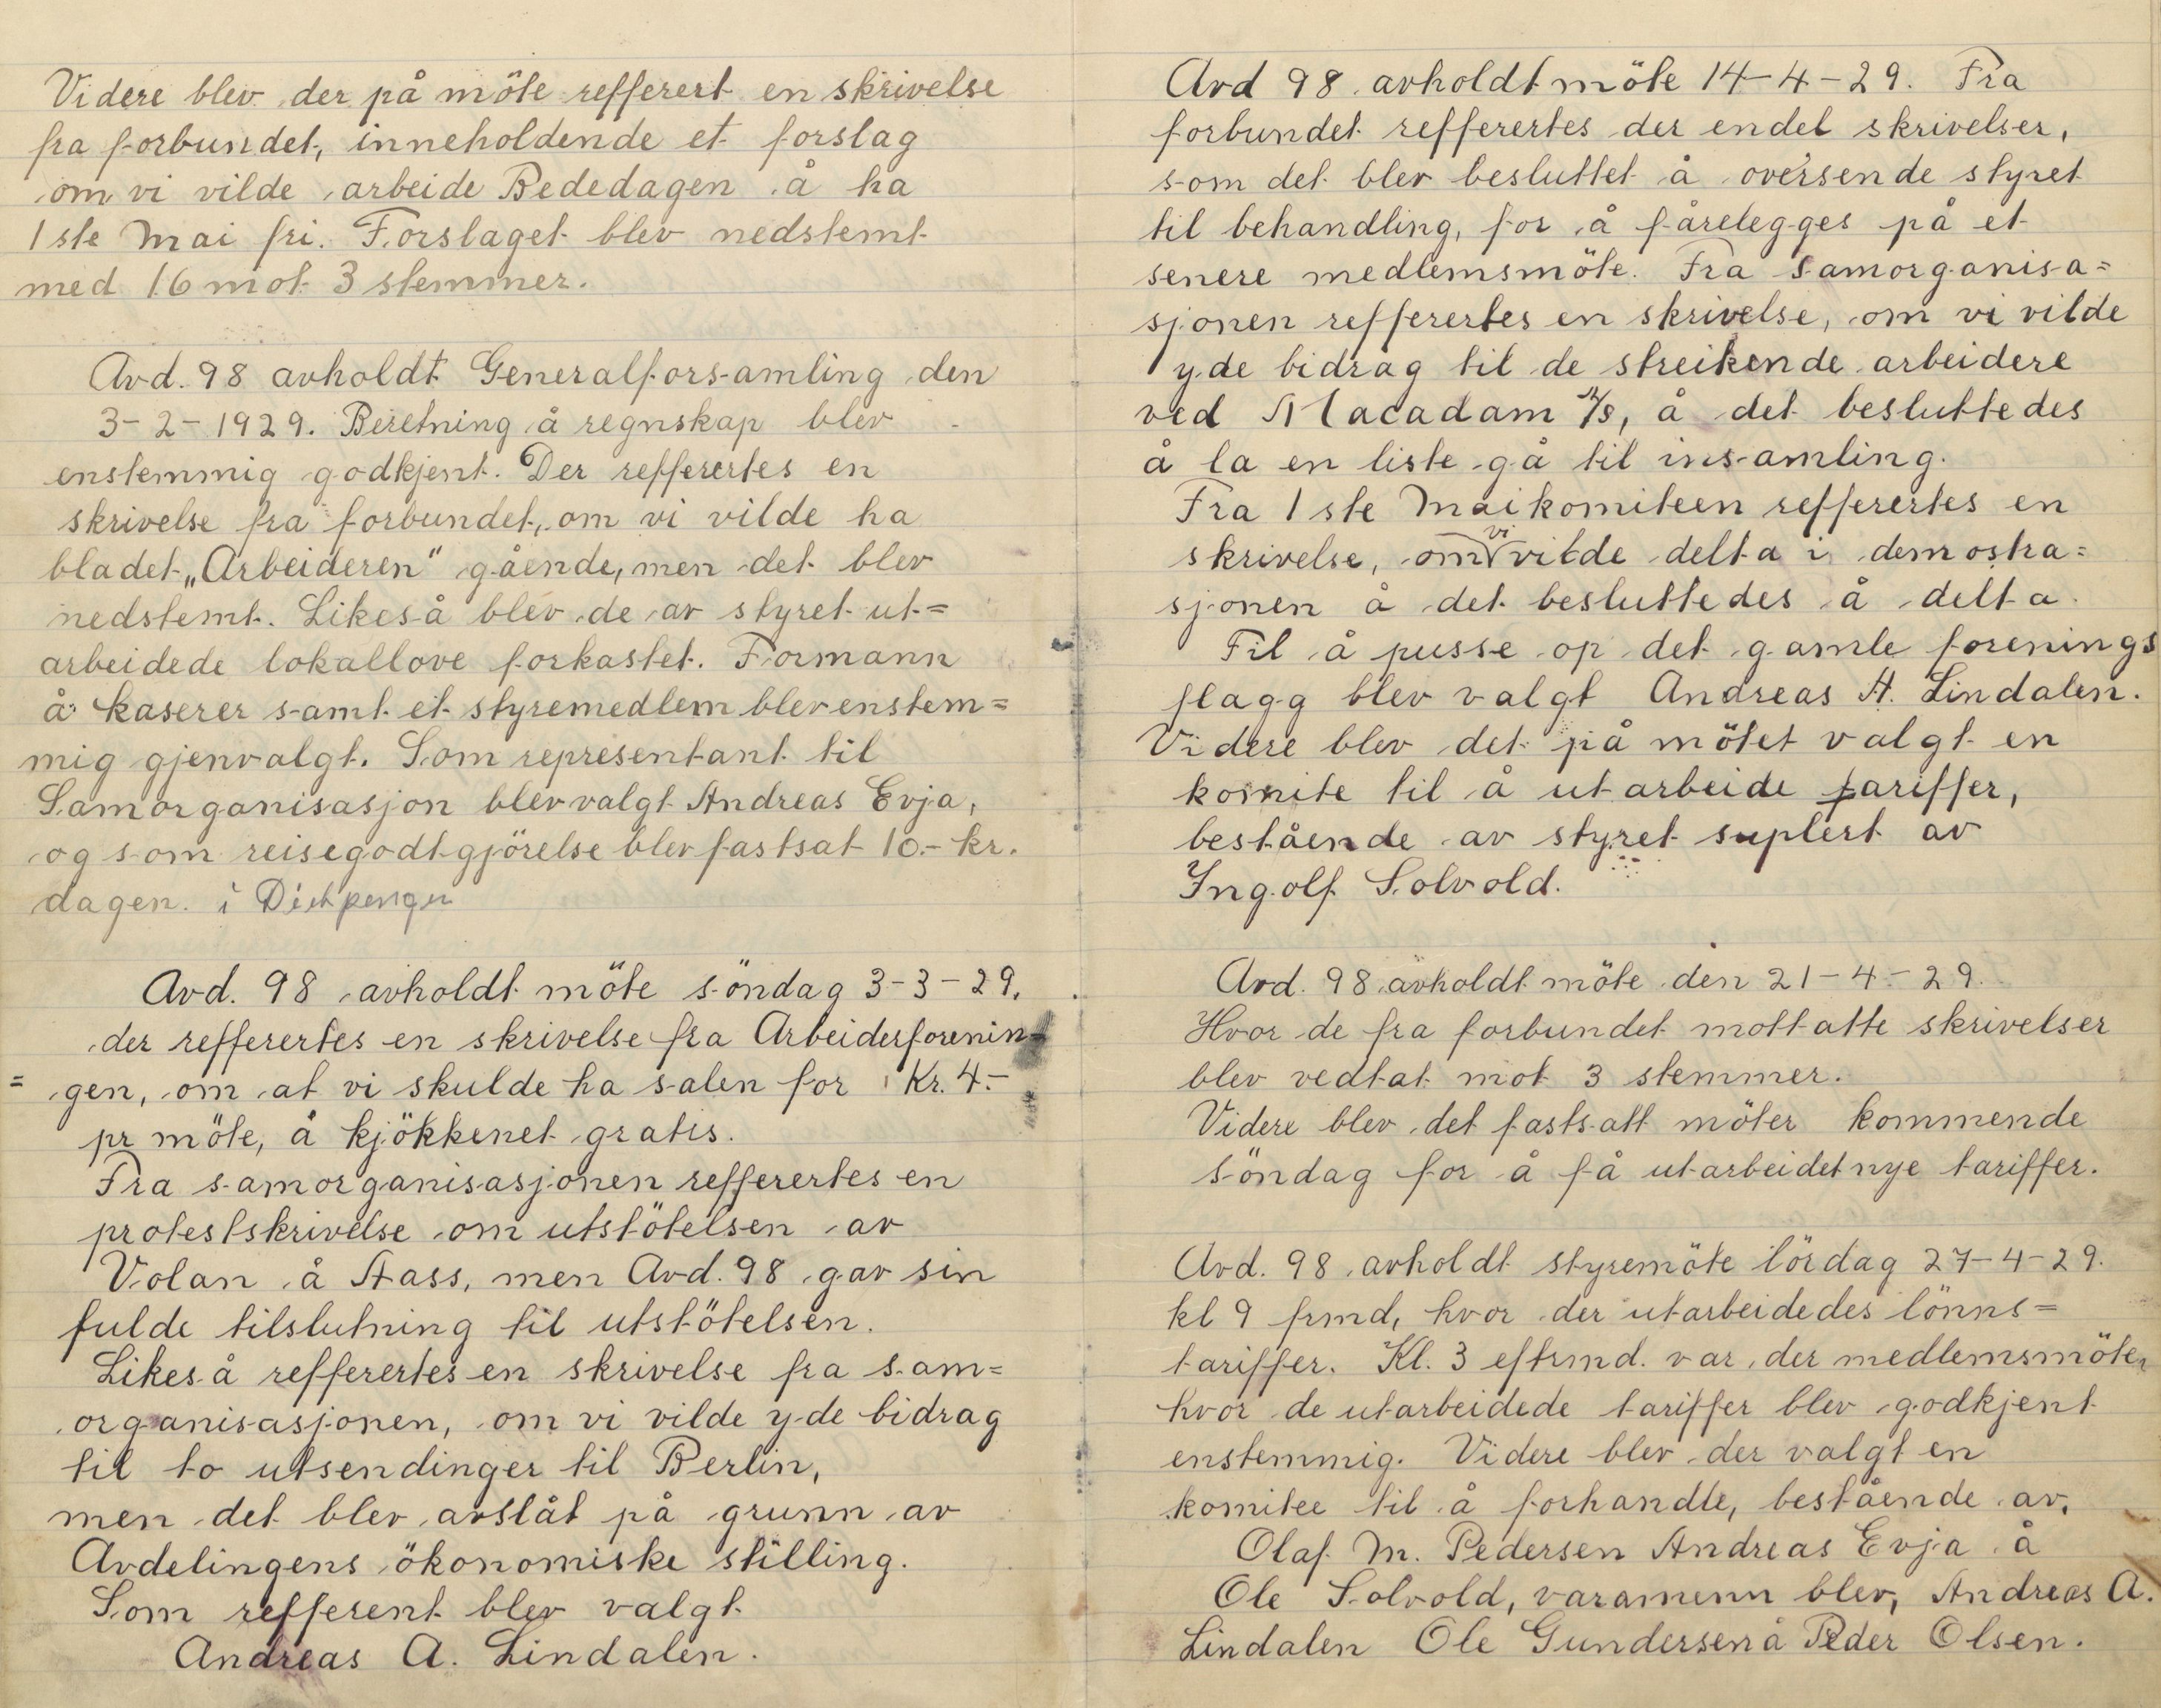 Videre blev der på möte refferert en skrivelse
fra forbundet, inneholdende et forslag
om vi vilde arbeide Bededagen å ha
1ste Mai fri. Forslaget blev nedstemt
med 16 mot 3 stemmer.
Avd. 98 avholdt Generalforsamling den
3-2-1929. Beretning å regnskap blev
enstemmig godkjent. Der refferertes en
skrivelse fra forbundet, om vi vilde ha
bladet „Arbeideren" gående, men det blev
nedstemt. Likeså blev de av styret ut=
arbeidede lokallove forkastet. Formann
å kaserer samt et styremedlem blev enstem=
mig gjenvalgt. Som representant til
Samorganisasjon blev valgt Andreas Evja,
og som reisegodtgjörelse blev fastsat 10.- kr.
dagen. i Dietpenger
Avd. 98 avholdt möte söndag 3-3-29.
der refferertes en skrivelse fra Arbeiderforenin=
= gen, om at vi skulde ha salen for Kr. 4.-
pr möte, å kjökkenet gratis.
Fra samorganisasjonen refferertes en
protestskrivelse om utstötelsen av
Volan å Aass, men Avd. 98 gav sin
fulde tilslutning til utstötelsen.
Likeså refferertes en skrivelse fra sam=
organisasjonen, om vi vilde yde bidrag
til to utsendinger til Berlin,
men det blev avslåt på grunn av
Avdelingens ökonomiske stilling.
Som refferent blev valgt
Andreas A. Lindalen.
Avd 98 avholdt möte 14-4-29. Fra
forbundet refferertes der endel skrivelser,
som det blev besluttet å oversende styret
til behandling, for å fårelegges på et
senere medlemsmöte. Fra Samorganisa=
sjonen refferertes en skrivelse, om vi vilde
yde bidrag til de streikende arbeidere
ved Macadam A/S, å det besluttedes
å la en liste gå til insamling.
Fra 1ste Maikomiteen refferertes en
skrivelse, om vi vilde delta i demostra=
sjonen å det besluttedes å delta.
Til å pusse op det gamle forenings
flagg blev valgt Andreas A. Lindalen.
Videre blev det på mötet valgt en
komite til å utarbeide tariffer,
bestående av styret suplert av
Ingolf Solvold.
Avd. 98 avholdt möte den 21-4-29.
Hvor de fra forbundet mottatte skrivelser
blev vedtat mot 3 stemmer.
Videre blev det fastsatt möter kommende
söndag for å få utarbeidet nye tariffer.
Avd. 98 avholdt styremöte lördag 27-4-29.
kl 9 frmd, hvor der utarbeidedes lönns=
tariffer. Kl. 3 eftrmd. var der medlemsmöte,
hvor de utarbeidede tariffer blev godkjent
enstemmig. Videre blev der valgt en
komitee til å forhandle, bestående av,
Olaf M. Pedersen Andreas Evja å
Ole Solvold, varamenn blev, Andreas A.
Lindalen Ole Gundersen å Peder Olsen.